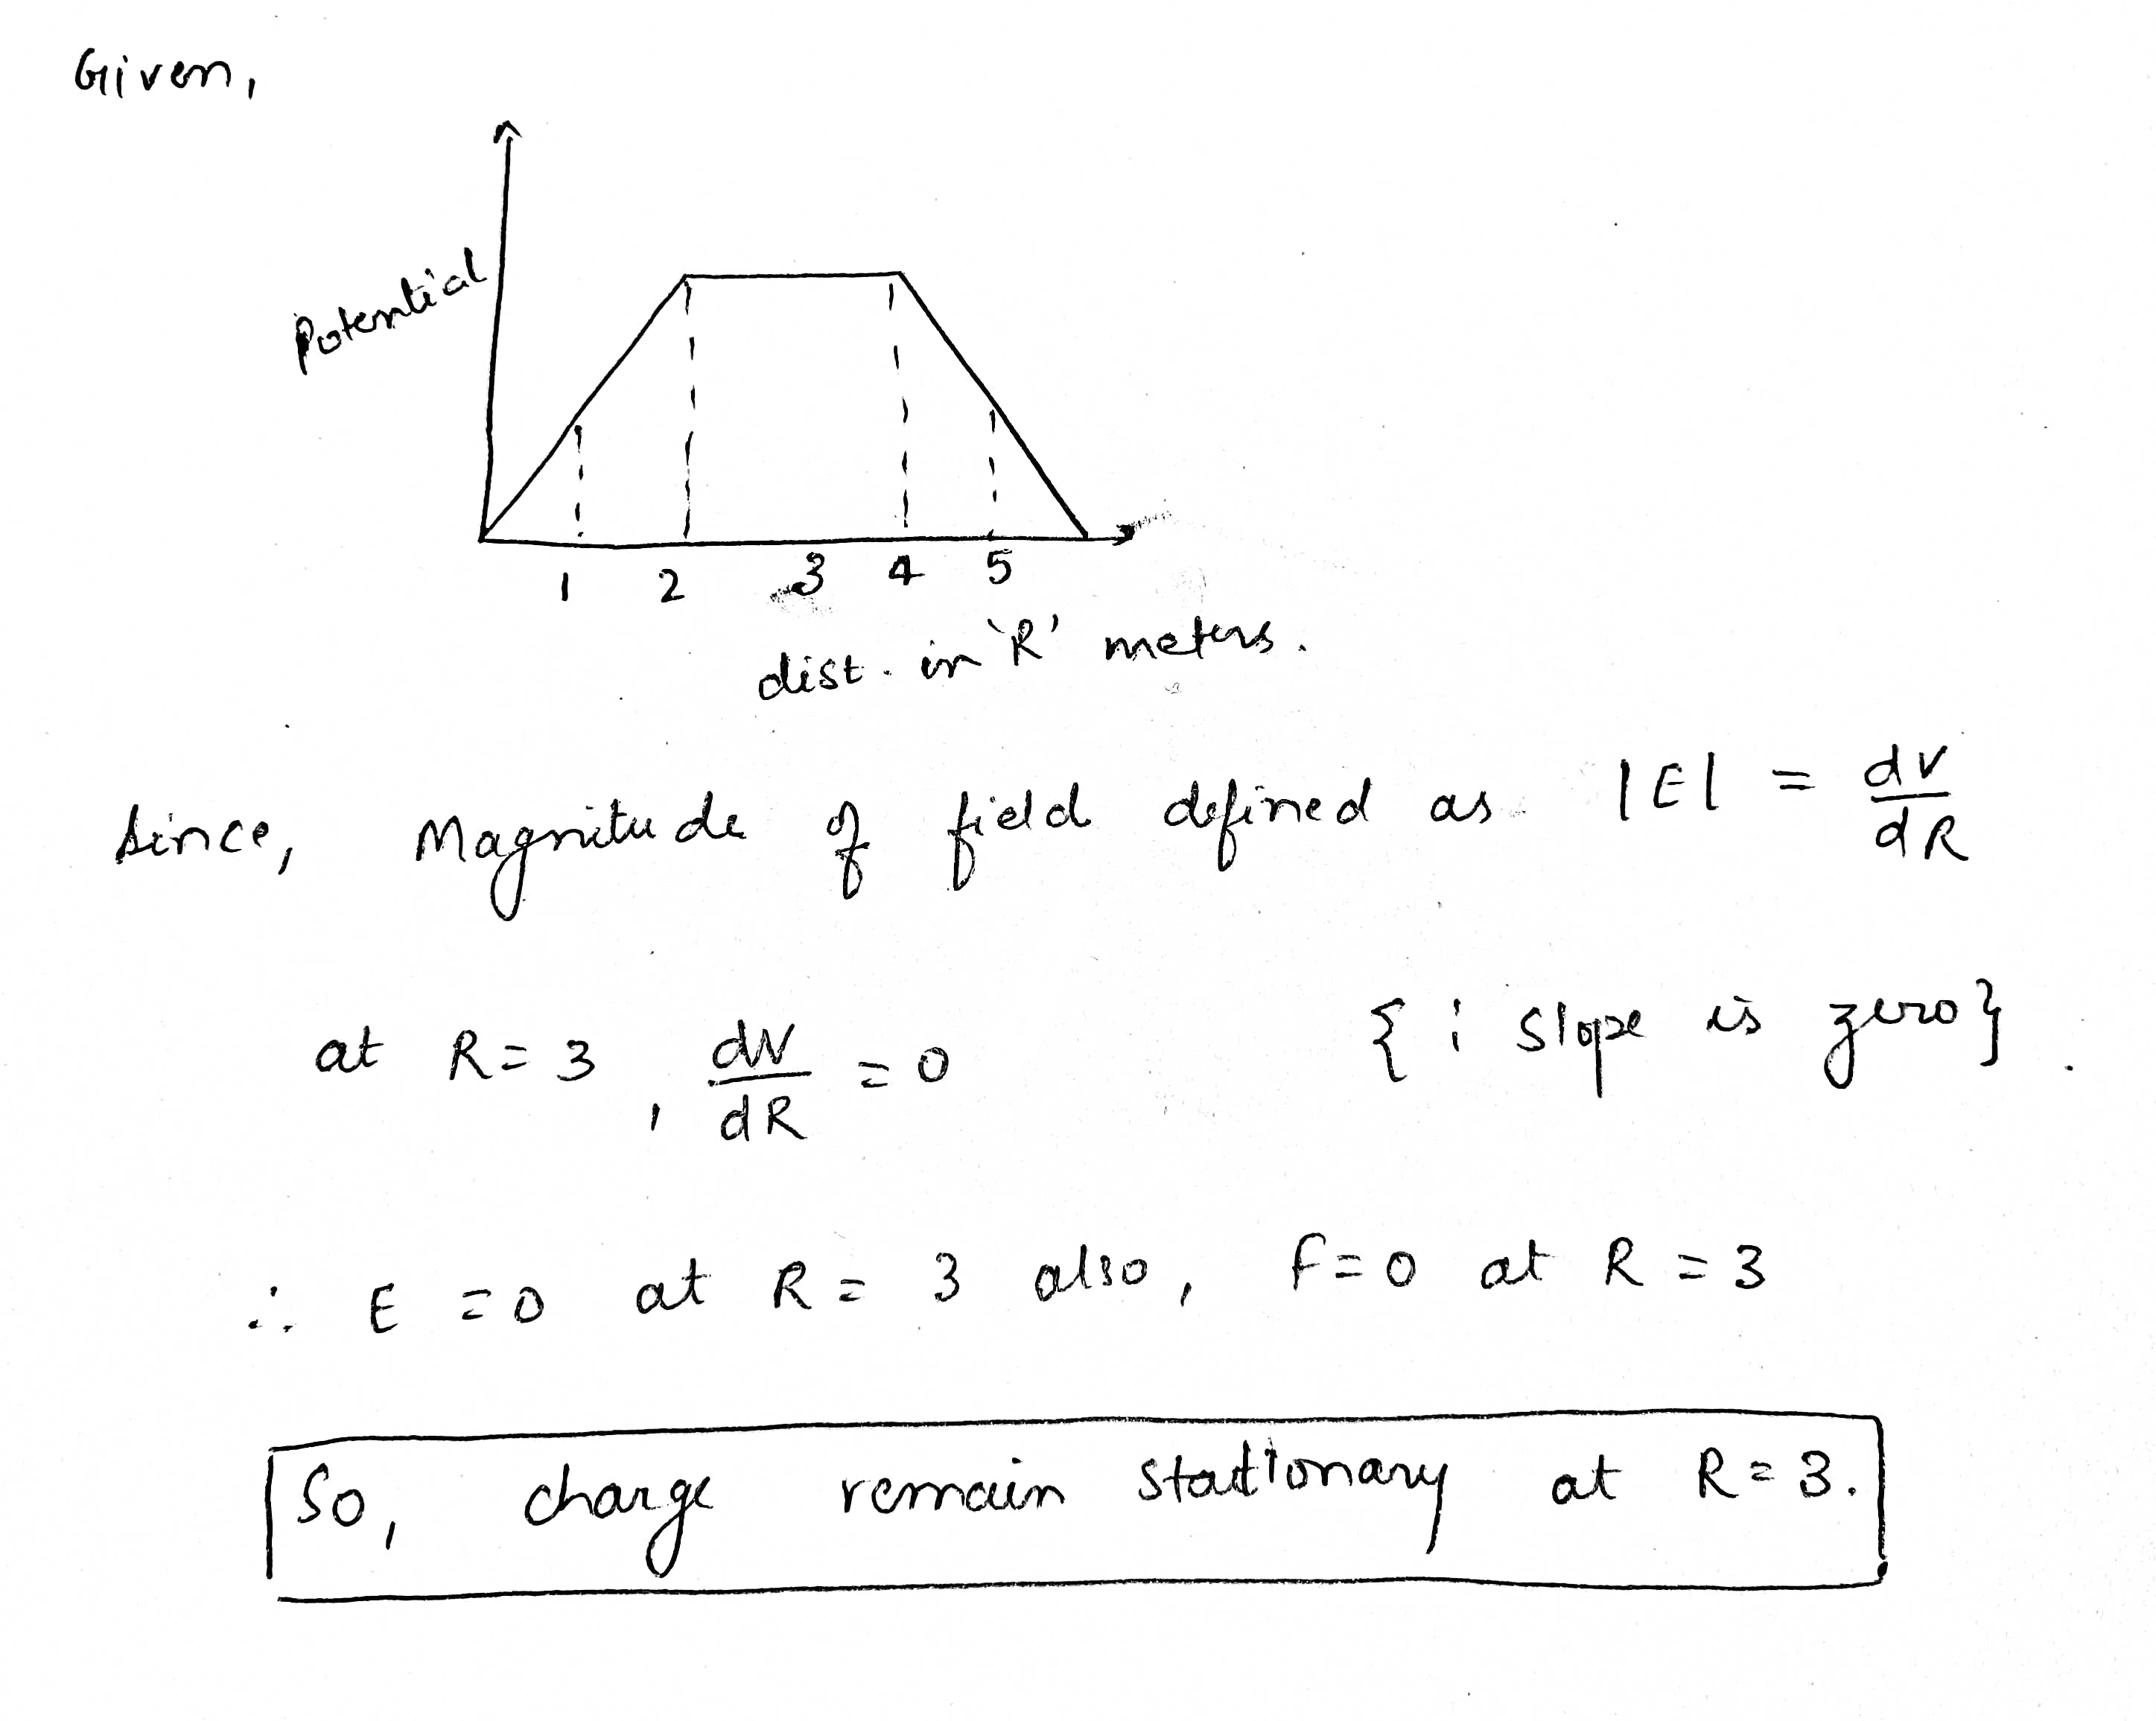 Given,
Potential
1 2 3 4 5
dist. in 'R' meters.
Since, Magnitude of field defined as |E| = dV/dR
at R = 3, dV/dR = 0 {∵ slope is zero}.
∴ E = 0 at R = 3 also, F = 0 at R = 3
So, charge remain stationary at R = 3.